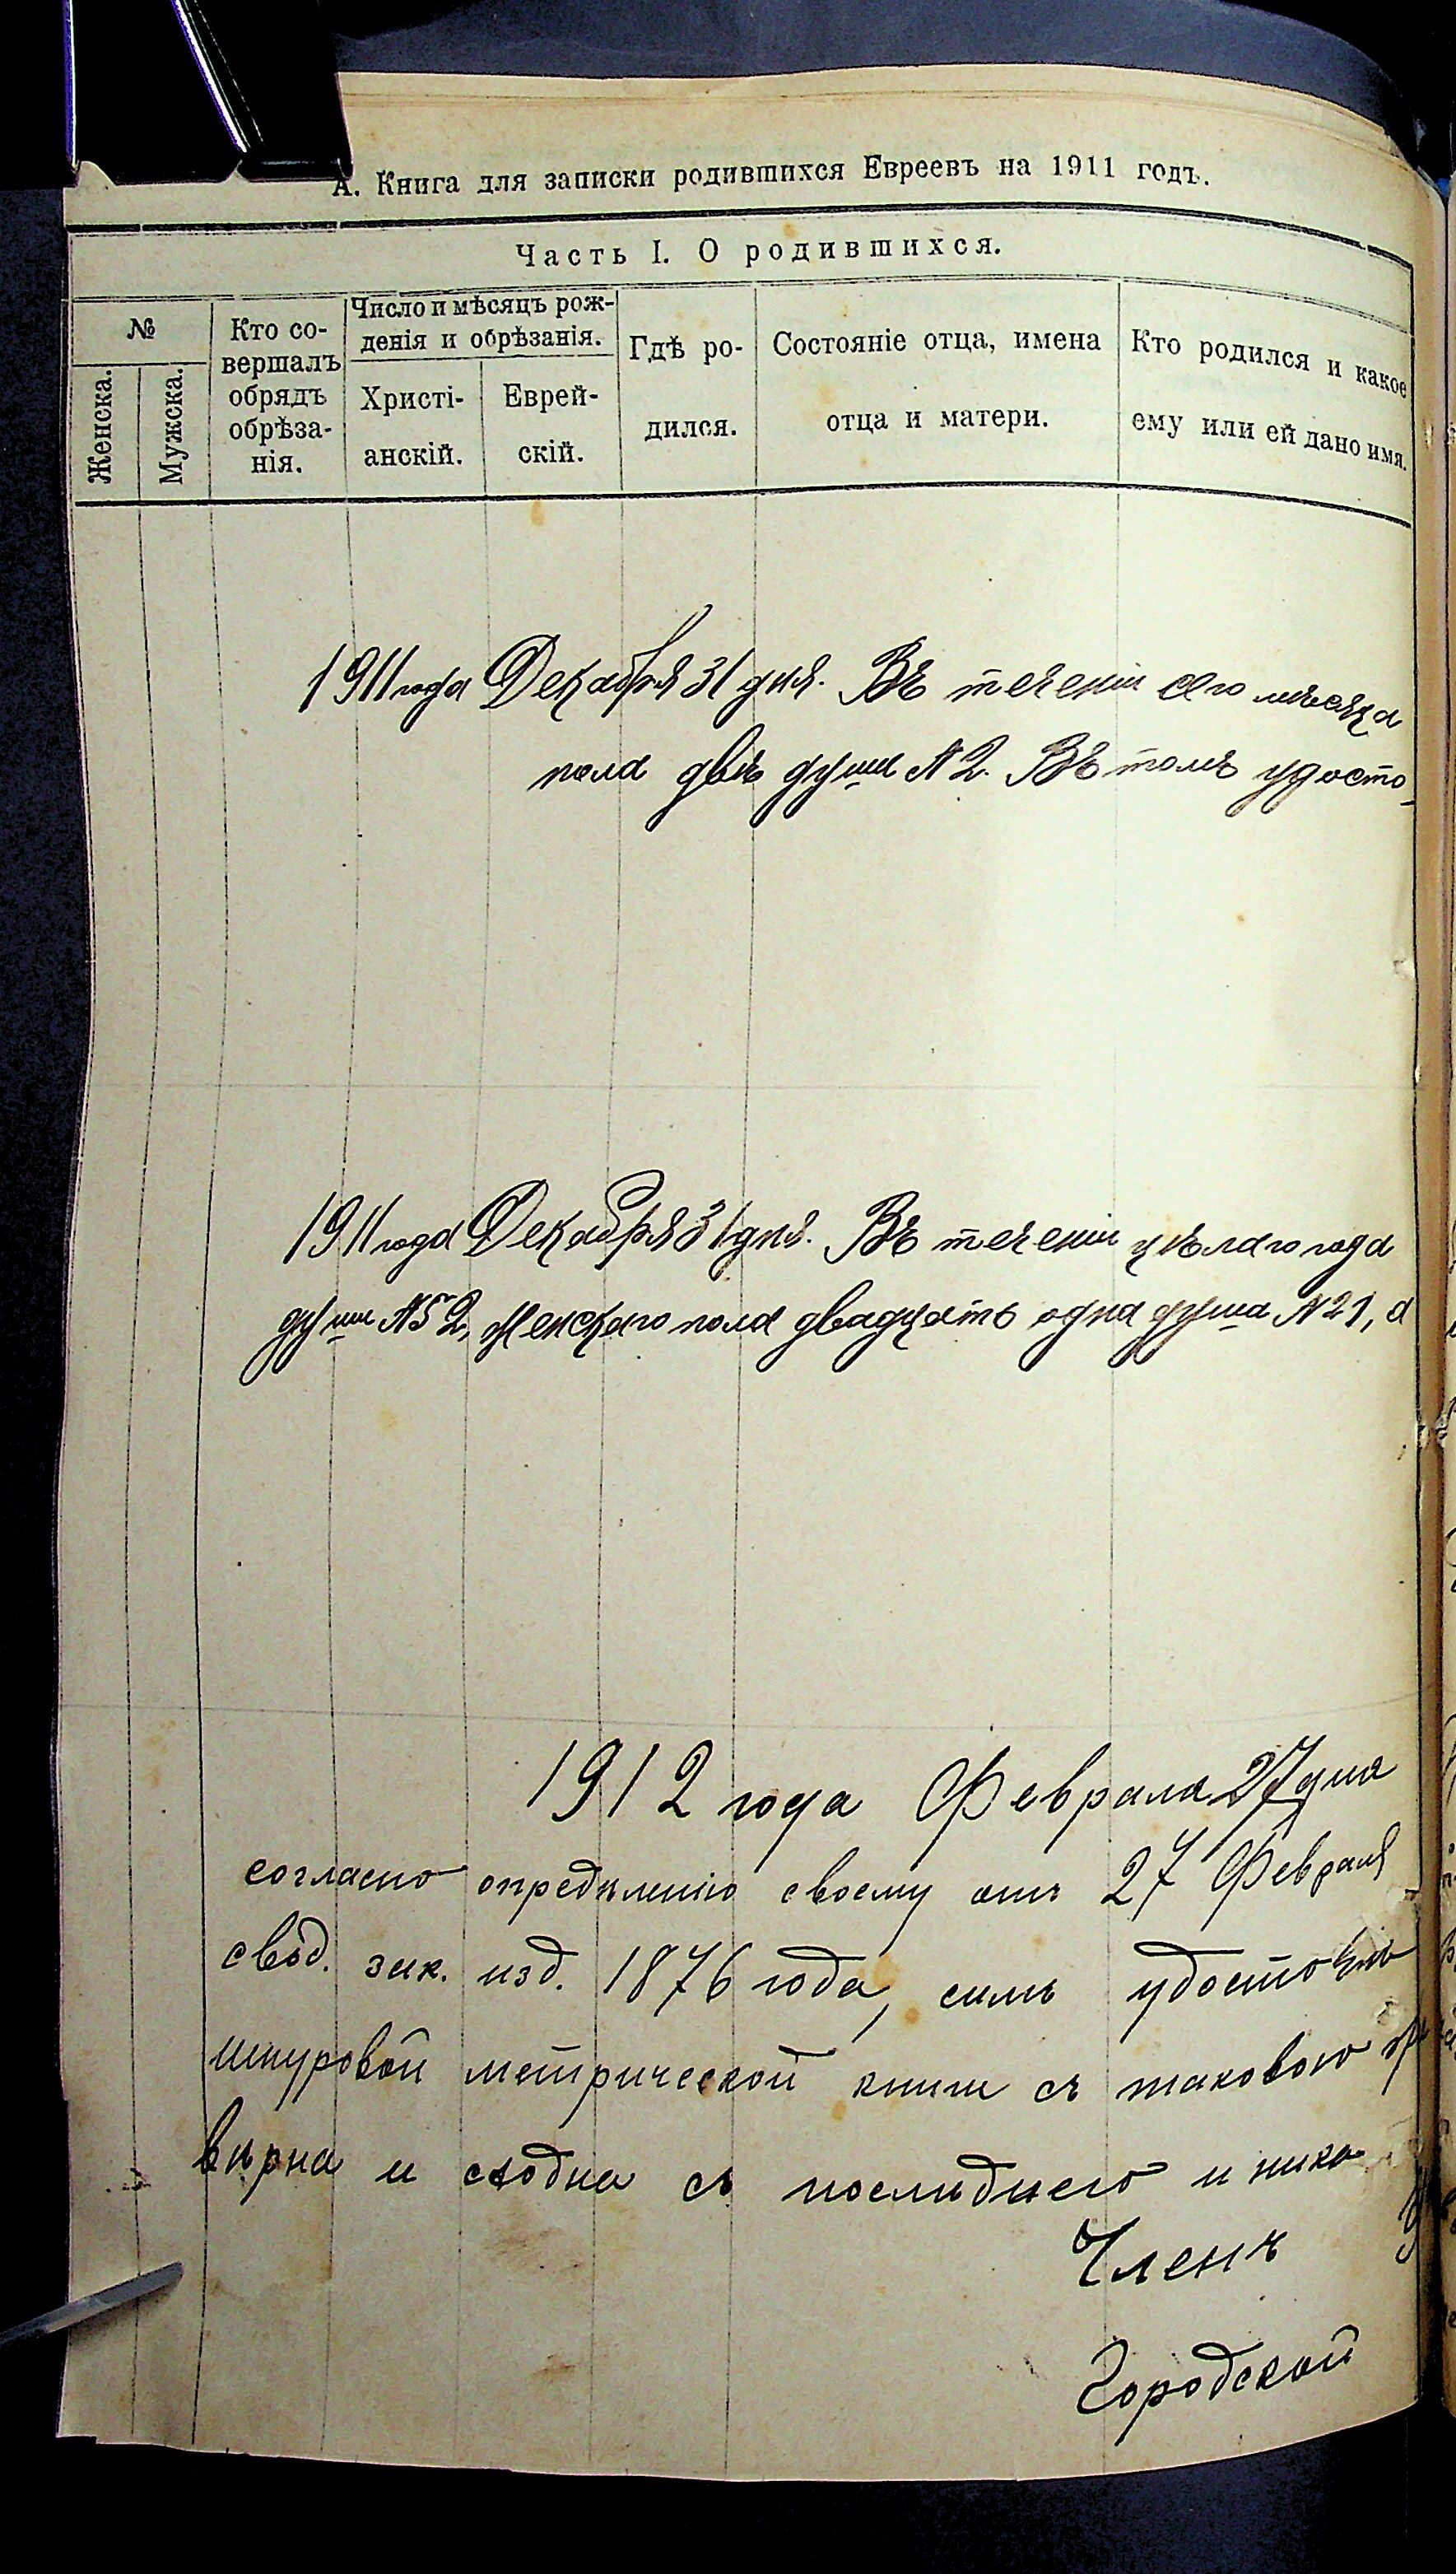 А. Книга для записки родившихся Евреевъ на 1911 годъ.
Часть I. О родившихся.
№
Женска.
Мужска.
Кто со-
вершалъ
обрядъ
обрѣза-
нія.
Число и мѣсяцъ рож-
денія и обрѣзанія.
Христі-
анскій.
Еврей-
скій.
Гдѣ ро-
дился.
Состояніе отца, имена
отца и матери.
Кто родился и какое
ему или ей дано имя.
1911 года Декабря 31 дня. Въ теченіи сего мѣсяца
пола двѣ души № 2. Въ томъ удосто-
1911 года Декабря 31 дня. Въ теченіи цѣлаго года
души № 52, Женскаго пола двадцать одна душа № 21, а
1912 года Февраля 27 дня
согласно опредѣленію своему отъ 27 Февраля
свод. зак. изд. 1876 года, симъ
шнуровой метрической книги съ таковою
вѣрна и сходна съ послѣднего и нико
Членъ
Городской